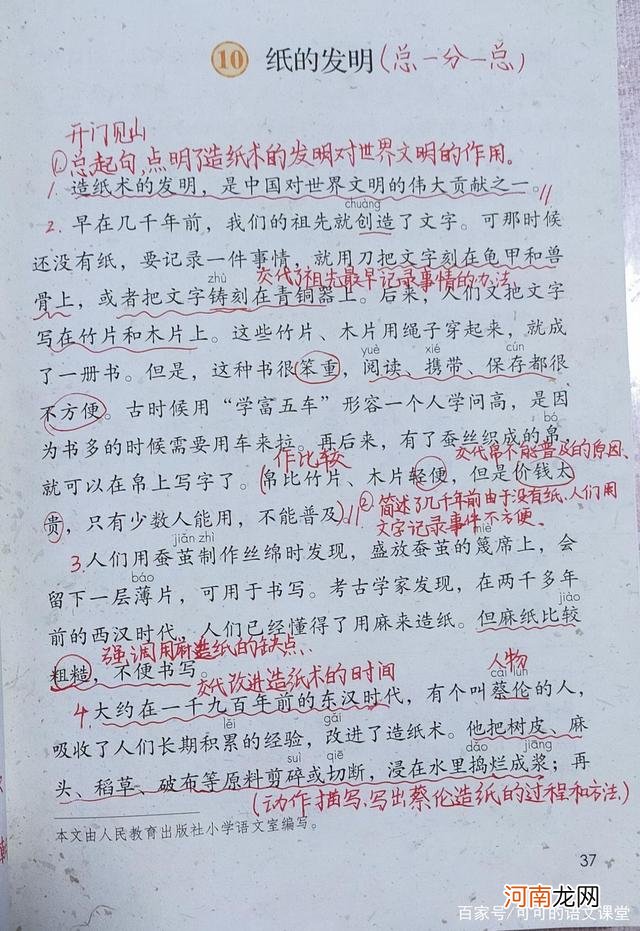 10 纸的发明(总一分一总)
开门见山
①总起句,点明了造纸术的发明对世界文明的作用。
1. 造纸术的发明,是中国对世界文明的伟大贡献之一。//
chuàng
2. 早在几千年前,我们的祖先就创造了文字。可那时候
还没有纸,要记录一件事情,就用刀把文字刻在龟甲和兽
zhù 交代了祖先最早记录事情的办法
骨上,或者把文字铸刻在青铜器上。后来,人们又把文字
写在竹片和木片上。这些竹片、木片用绳子穿起来,就成
yuè xié cún
了一册书。但是,这种书很笨重,阅读、携带、保存都很
不方便。古时候用“学富五车”形容一个人学问高,是因
bó
为书多的时候需要用车来拉。再后来,有了蚕丝织成的帛,
作比较 交代帛不能普及的原因、
就可以在帛上写字了。(帛比竹片、木片轻便,但是价钱太
贵,只有少数人能用,不能普及)。//
②简述了几千年前由于没有纸、人们用
文字记录事件不方便、
jiǎn zhì miè
3.人们用蚕茧制作丝绵时发现,盛放蚕茧的篾席上,会
báo
留下一层薄片,可用于书写。考古学家发现,在两千多年
jiào
前的西汉时代,人们已经懂得了用麻来造纸。但麻纸比较
强调用麻造纸的缺点、
粗糙,不便书写。
交代改进造纸术的时间 人物
cài lún
4.大约在一千九百年前的东汉时代,有个叫蔡伦的人,
lěi gǎi
吸收了人们长期积累的经验,改进了造纸术。他把树皮、麻
suì qiē dǎo jiāng
头、稻草、破布等原料剪碎或切断,浸在水里捣烂成浆;再
(动作描写、写出蔡伦造纸的过程和方法)
本文由人民教育出版社小学语文室编写。
37
河南龙网
百家号/可可的语文课堂